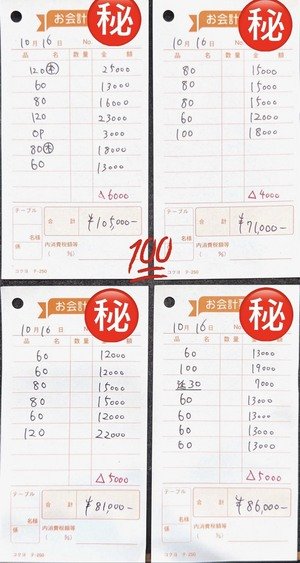 お会計
秘
10月16日 No
品 名 数量 金 額
120 25000
60 13000
80 16000
120 23000
OP 3000
80 18000
60 13000
△6000
テーブル
合計 ¥105,000-
係 名様 内消費税額等
( %)
コクヨ テ-250
秘
お会計
10月16日 No
品 名 数量 金 額
80 15000
80 15000
80 15000
60 12000
100 18000
△4000
テーブル
合計 ¥71,000-
係 名様 内消費税額等
( %)
コクヨ テ-250
100
お会計
秘
10月16日 No
品 名 数量 金 額
60 12000
60 12000
80 15000
80 15000
60 12000
120 22000
△5000
テーブル
合計 ¥81,000-
係 名様 内消費税額等
( %)
コクヨ テ-250
お会計
秘
10月16日 No
品 名 数量 金 額
60 13000
100 19000
延30 7000
60 13000
60 13000
60 13000
60 13000
△5000
テーブル
合計 ¥86,000-
係 名様 内消費税額等
( %)
コクヨ テ-250